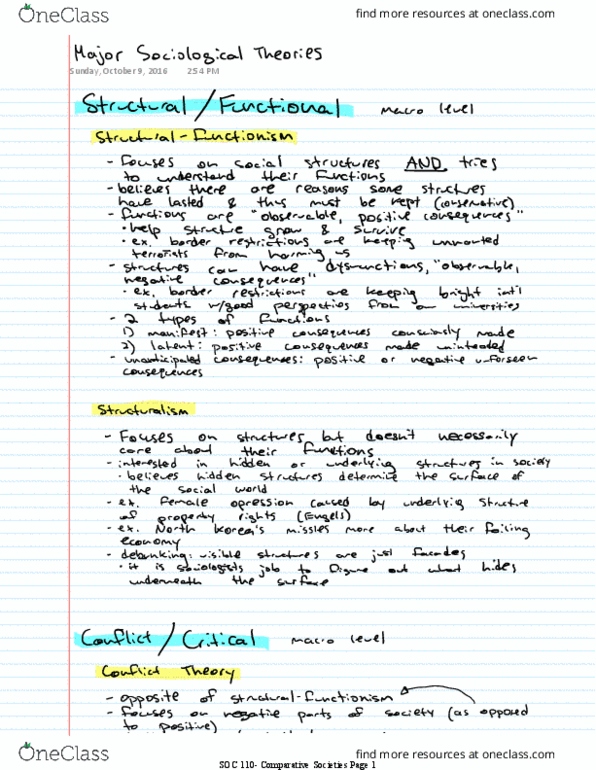 OneClass
find more resources at oneclass.com
Major Sociological Theories
Sunday, October 9, 2016 2:54 PM
Structural/Functional macro level
Structural-functionism
- focuses on social structures AND tries
to understand their functions
- believes there are reasons some structures
have lasted & thus must be kept (conservative)
- functions are "observable, positive consequences"
• help structure grow & survive
• ex. border restrictions are keeping unwanted
terrorists from harming us
- structures can have dysfunctions, "observable,
negative consequences"
• ex. border restrictions are keeping bright int'l
students w/good perspectives from our universities
- 2 types of functions
1) manifest: positive consequences consciously made
2) latent: positive consequences made unintended
- unanticipated consequences: positive or negative unforseen
consequences
Structuralism
- Focuses on structures but doesn't necessarily
care about their functions
- interested in hidden or underlying structures in society
• believes hidden structures determine the surface of
the social world
- ex. female opression caused by underlying structure
of property rights (Engels)
- ex. North Korea's missles more about their failing
economy
- debunking: visible structures are just facades
• it is sociologists job to figure out what hides
underneath the surface
Conflict/Critical macro level
Conflict Theory
- opposite of structural-functionism
- focuses on negative parts of society (as opposed
to positive)
OneClass
find more resources at oneclass.com
SOC 110- Comparative Societies Page 1